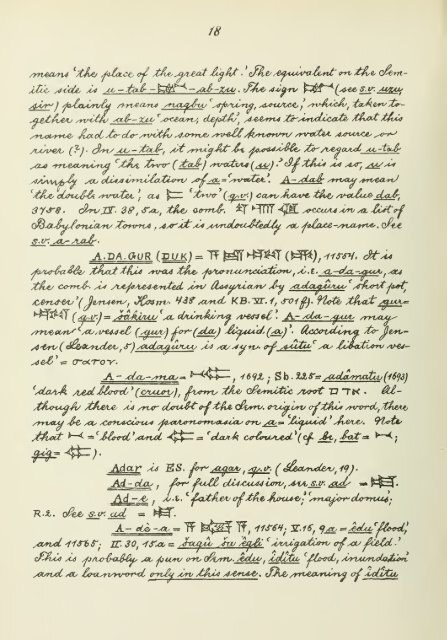 18
means 'the place of the great light.' The equivalent on the Sem-
itic side is u-tab- -ab-zu. The sign (see s.v. uzu,
sir) plainly means nagbu 'spring, source,' which, taken to-
gether with ab-zu 'ocean, depth,' seems to indicate that this
name had to do with some well known water source or
river (?). In u-tab, it might be possible to regard u-tab
as meaning 'the two (tab) waters (u).' If this is so, u is
simply a dissimilation of a = 'water'. A-dab may mean
'the double water,' as 'two' (q.v.) can have the value dab,
3758. In IV. 38, 5a, the comb. occurs in a list of
Babylonian towns, so it is undoubtedly a place-name. See
s.v. a-rab.
A.DA.GUR (DUK) = 𒀀 ( ), 11554. It is
probable that this was the pronunciation, i.e. a-da-gur, as
the comb. is represented in Assyrian by adagûru 'short pot,
censer' (Jensen, Kosm. 438 and KB. VI. 1, 501 f). Note that gur =
(q.v.) = šâkiru 'a drinking vessel.' A-da-gur may
mean 'a vessel (gur) for (da) liquid (a)'. According to Jen-
sen (Leander, 5) adagûru is a syn. of sûtu 'a libation ves-
sel' = σατον.
A-da-ma = , 1692; Sb. 225 = adâmatu (1693)
'dark red blood' (cruor), from the Semitic root אדם. Al-
though there is no doubt of the Sem. origin of this word, there
may be a conscious paronomasia on a = 'liquid' here. Note
that = 'blood' and = 'dark coloured' (cf. be, bat = ;
gig = ).
Adar is ES. for agar, q.v. (Leander, 19).
Ad-da, for full discussion, see s.v. ad = .
Ad-e, i.e. 'father of the house;' 'major domus';
R.2. See s.v. ad = .
A-dê-a = 𒀀 𒀀, 11564; V. 16, 9a = êdu 'flood,'
and 11565; II. 30, 15a = šaqû ša êqli 'irrigation of a field.'
This is probably a pun on Sem. êdu, îdîtu 'flood, inundation'
and a loanword only in this sense. The meaning of îdîtu